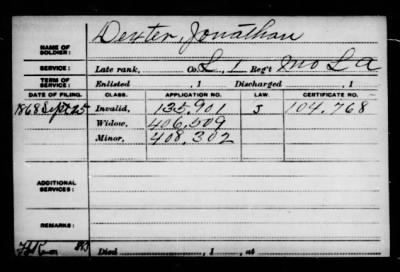 NAME OF SOLDIER: Dexter, Jonathan
SERVICE: Late rank, Co. L, 1 Reg't Mo L A
TERM OF SERVICE: Enlisted , 1 Discharged , 1
DATE OF FILING. CLASS. APPLICATION NO. LAW. CERTIFICATE NO.
1868 Sept 25 Invalid, 135.901 J 104.768
Widow, 406,509
Minor, 408,302
ADDITIONAL SERVICES:
REMARKS:
Died , 1 , at